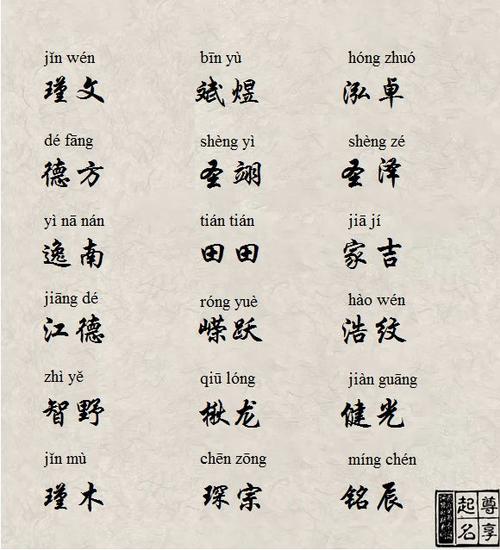 jǐn wén bīn yù hóng zhuó
瑾文 斌煜 泓卓
dé fāng shèng yì shèng zé
德方 圣翊 圣泽
yì nā nán tián tián jiā jí
逸南 田田 家吉
jiāng dé róng yuè hào wén
江德 嵘跃 浩纹
zhì yě qiū lóng jiàn guāng
智野 楸龙 健光
jǐn mù chēn zōng míng chén
瑾木 琛宗 铭辰
尊享
起名